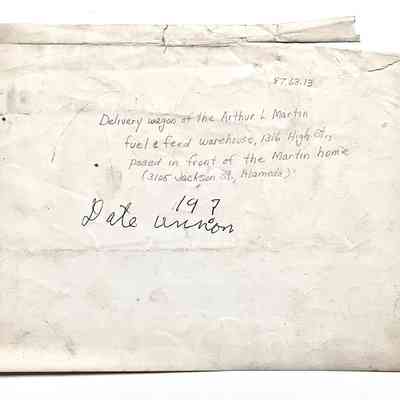 87.63.13
Delivery wagon of the Arthur L Martin
fuel & feed warehouse, 1316 High St.,
posed in front of the Martin home
(3105 Jackson St., Alameda)
19 ?
Date unnon